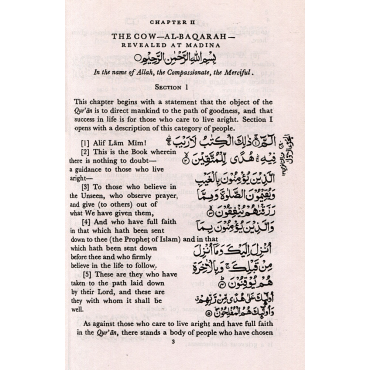 CHAPTER II
THE COW—AL-BAQARAH—
REVEALED AT MADINA
بِسْمِ اللهِ الرَّحْمٰنِ الرَّحِيْمِ
In the name of Allah, the Compassionate, the Merciful.
SECTION 1
This chapter begins with a statement that the object of the
Qur'ān is to direct mankind to the path of goodness, and that
success in life is for those who care to live aright. Section I
opens with a description of this category of people.
[1] Alif Lām Mīm!
[2] This is the Book wherein
there is nothing to doubt—
a guidance to those who live
aright—
[3] To those who believe in
the Unseen, who observe prayer,
and give (to others) out of
what We have given them,
[4] And who have full faith
in that which hath been sent
down to thee (the Prophet of Islam) and in that
which hath been sent down
before thee and who firmly
believe in the life to follow,
[5] These are they who have
taken to the path laid down
by their Lord, and these are
they with whom it shall be
well.
الٓمّٓ ذٰلِكَ الْكِتٰبُ لَا رَيْبَ
فِيْهِ هُدًى لِّلْمُتَّقِيْنَ
الَّذِيْنَ يُؤْمِنُوْنَ بِالْغَيْبِ
وَيُقِيْمُوْنَ الصَّلٰوةَ وَمِمَّا
رَزَقْنٰهُمْ يُنْفِقُوْنَ
وَالَّذِيْنَ يُؤْمِنُوْنَ بِمَا
اُنْزِلَ اِلَيْكَ وَمَا اُنْزِلَ
مِنْ قَبْلِكَ وَبِالْاٰخِرَةِ
هُمْ يُوْقِنُوْنَ
اُولٰٓئِكَ عَلٰى هُدًى مِّنْ رَّبِّهِمْ
وَاُولٰٓئِكَ هُمُ الْمُفْلِحُوْنَ
As against those who care to live aright and have full faith
in the Qur'ān, there stands a body of people who have chosen
3